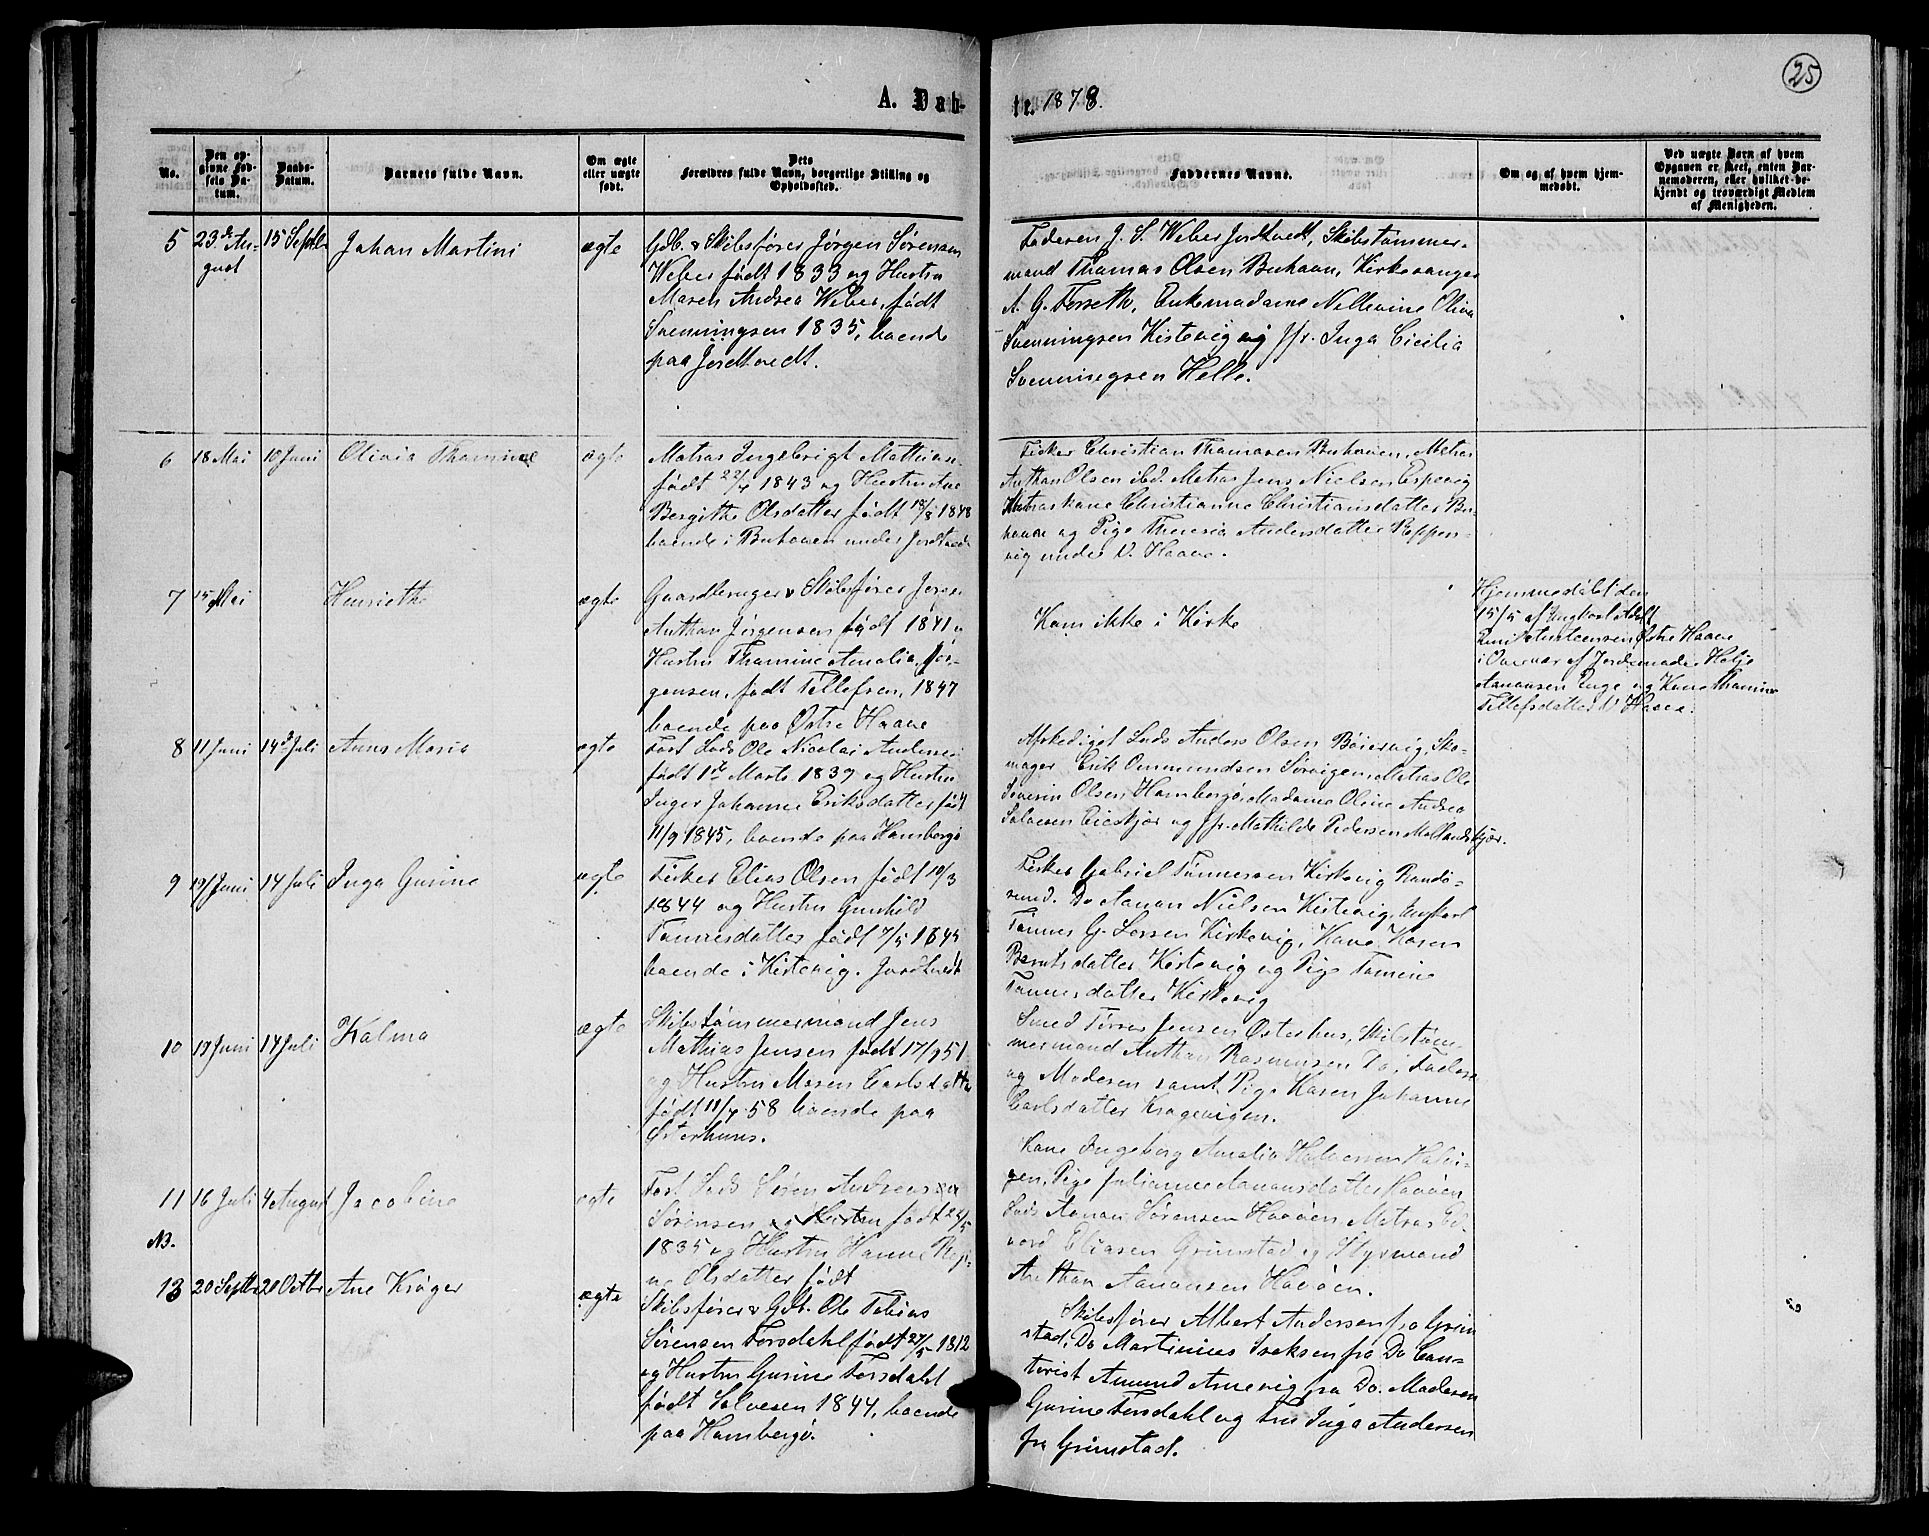 25
A. Dab-
te. 1878.
No.
Den op-
givne Fød-
sels Da-
tum.
Daabs-
Datum.
Barnets fulde Navn.
Om ægte
eller uægte
født.
Dets
Forældres fulde Navn, borgerlige Stilling og
Opholdssted.
Faddernes Navne.
Om og af hvem hjem-
medøbt.
Ved uægte Børn af hvem
Opgaven er skeet, enten Bar-
nemoderen, eller hvilket be-
kjendt og troværdigt Medlem
af Menigheden.
5
23de Au-
gust
15 Septbr
Johan Martini
ægte
Gdb. & Skibsfører Jørgen Sørensen
Weber født 1833 og Hustru
Maren Andrea Weber, født
Svenningsen 1835, boende
paa Jordtvedt.
Faderen J. S. Weber Jordtvedt, Skibstømmer-
mand Thomas Olsen Buhaven, Kirkesanger
A. G. Forseth, Enkemadame Nillevine Olivia
Svenningsen Kistevig og Jfr. Inga Cicilia
Svenningsen Helle.
6
18 Mai
10 Juni
Olivia Thomine
ægte
Matros Ingebrigt Mathias.
født 22/4 1843 og Hustru Ane
Bergithe Olsdatter født 18/8 1848
boende i Buhaven under Jordtvedt
Fisker Christian Thomasen Buhaven, Matros
Anthon Olsen ibd. Matros Jens Nielsen Espevig
Matroskone Christianne Christiansdatter Bu-
haven og Pige Theresia Andersdatter Reppers-
vig under V. Haave.
7
15 Mai
Henriette
ægte
Gaardbruger & Skibsfører Jørgen
Anthon Jørgensen født 1841 og
Hustru Thomine Amalia Jør-
gensen, født Tellefsen, 1847
boende paa Østre Haave
Kom ikke i Kirke
Hjemmedøbt den
15/5 af Ungkarl Adolf
Emil Austensen Østre Haave
i Overvær af Jordemoder Helje
Aanonsen Enge og Kone Thomine
Tellefsdatter V. Haave.
8
11 Juni
14de Juli
Anne Maria
ægte
Fast Lods Ole Nicolai Andersen
født 1de Marts 1839 og Hustru
Inger Johanne Eriksdatter født
11/9 1845, boende paa Homborgø
Afskediget Lods Anders Olsen Bøievig, Sko-
mager Erik Ommundsen Sørvigen, Matros Ole
Severin Olsen Homborgø, Madame Oline Andrea
Salvesen Eieskjær og Jfr. Mathilde Pedersen Mollandskjær.
9
19 Juni
14 Juli
Inga Gurine
ægte
Fisker Elias Olsen født 10/3
1844 og Hustru Gunhild
Tønnesdatter født 7/5 1845
boende i Kistevig. Jordtvedt
Fisker Gabriel Tønnessen Kirkevig Randø-
sund. Do Aanon Nielsen Kistevig, Ungkarl
Tønnes G. Larsen Kirkevig, Kone Karen
Berntsdatter Kistevig og Pige Tomine
Tønnesdatter Kirkevig
10
19 Juni
14 Juli
Kalma
ægte
Skibstømmermand Jens
Mathias Jensen født 17/9 51
og Hustru Maren Carlsdatter
født 11/4 58 boende paa
Østerhuus.
Smed Terres Jensen Østerhus, Skibstøm-
mermand Anthon Rasmusen Do, Faderen
og Moderen samt Pige Karen Johanne
Carlsdatter Kragevigen.
11
16 Juli
4 August
Jacobine
ægte
Fast Lods Søren Andreas
Sørensen og Hustru født 24/5
1835 og Hustru Hanne Regi-
na Olsdatter født
Kone Ingeborg Amalia Halvorsen Halvi-
gen, Pige Julianne Aanonsdatter Havøen
Lods Aanon Sørensen Havøen, Matros Ed-
vard Eliasen Grimstad og Styrmand
Anthon Aanonsen Havøen.
NB.
13
20 Septbr
20 Octbr
Ane Krøger
ægte
Skibsfører & Gdb. Ole Tobias
Sørensen Forsdahl født 27/5 1812
og Hustru Gurine Forsdahl
født Salvesen 1844, boende
paa Homborgø.
Skibsfører Albert Andersen fra Grim
stad, Do Martinius Iseksen fra Do Con-
torist Amund Arnevig fra Do. Moderen
Gurine Forsdahl og Fru Inga Andersen
fra Grimstad.